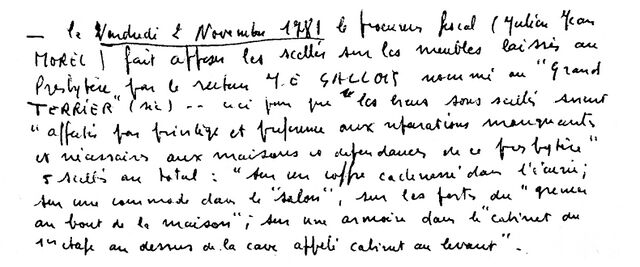 — le Vendredi 2 Novembre 1781 le procureur fiscal (Julien Jean
MOREL) fait apposer les scellés sur les meubles laissés au
Presbytère, par le recteur J.E GALLOIS nommé au "Grand
TERRIER" (sic) -- ceci pour que les biens sous scellés soient
"affectés par privilège et préférence aux réparations manquantes
et nécessaires aux maisons et dépendances de ce presbytère"
5 scellés au total : "sur un coffre cadenassé dans l'écurie;
sur une commode dans le "salon", sur les ports du "grenier
au bout de la maison"; sur une armoire dans le "cabinet du
1er étage au dessus de la cave appelé cabinet au levant".